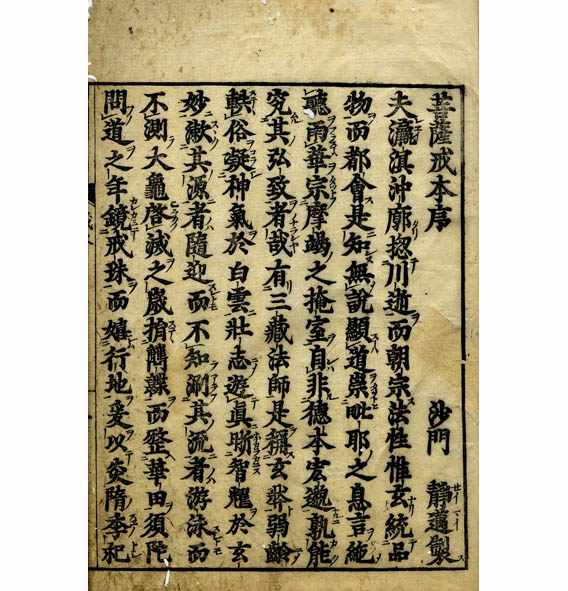 菩薩戒本序 沙門 靜邁製
夫瀛溟沖廓揔川逝而朝宗法性惟玄統品
物而都會是知無說顯道崇毗耶之息言絶
聽雨華宗摩竭之掩室自非德本宏邈孰能
究其弘致者哉有三藏法師是稱玄弉弱齡
軼俗凝神氣於白雲壯志遊眞智於玄
妙漱其源者隨迎而不知涮其流者游泳而
不測大龜啓滅之歲而整華田須陁
問道之年鏡戒珠而嬉行地爰以炎隋季祀